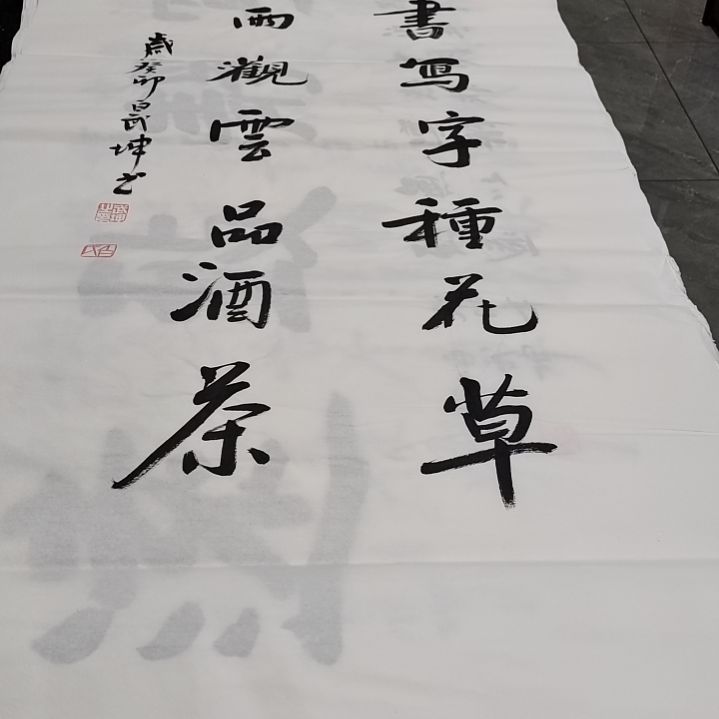 書写字種花草
雨觀雲品酒茶
歲癸卯吕武坤书